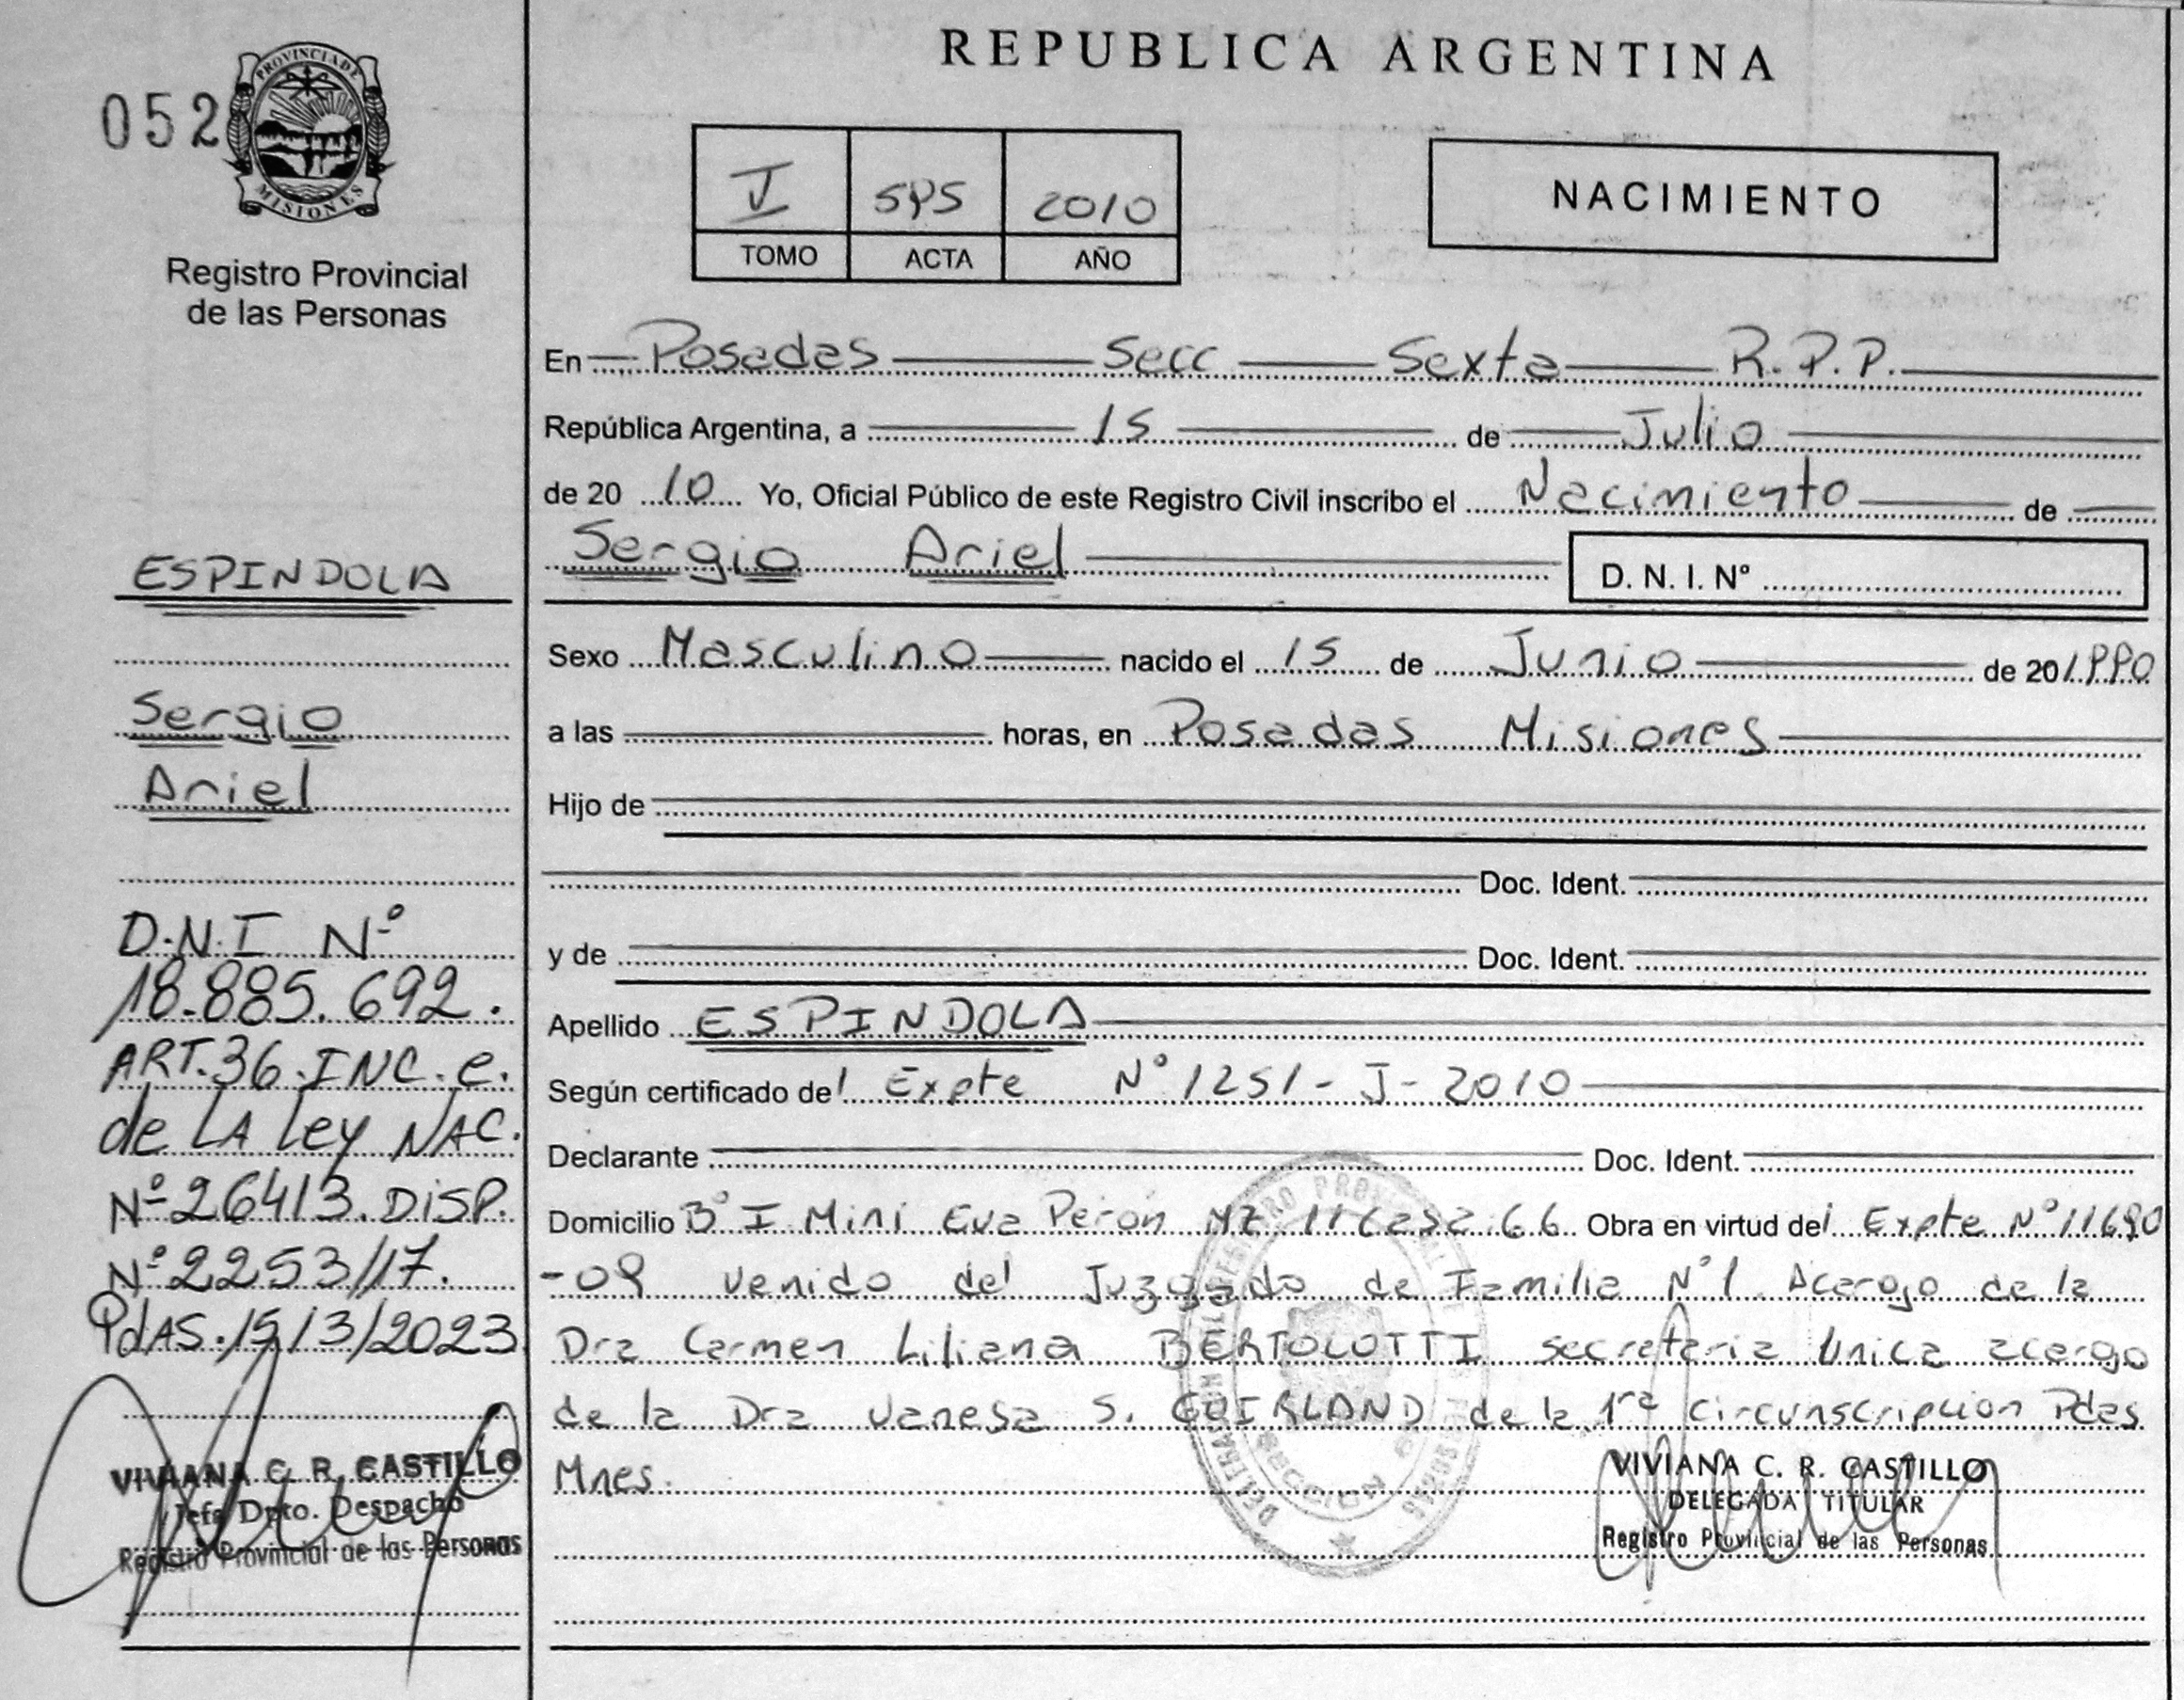 REPUBLICA ARGENTINA
052
PROVINCIA DE
MISIONES
Registro Provincial
de las Personas
I 2010
TOMO ACTA AÑO
NACIMIENTO
En Posadas Secc Sexta R.P.P.
República Argentina, a 15 de Julio
de 20 10 Yo, Oficial Público de este Registro Civil inscribo el Nacimiento de
Sergio Ariel D. N. I. Nº
Sexo Masculino nacido el 15 de Junio de 20 1990
a las horas, en Posadas Misiones
Hijo de
Doc. Ident.
y de Doc. Ident.
Apellido ESPINDOLA
Según certificado del Expte Nº 1251-J-2010
Declarante Doc. Ident.
Domicilio Bº I Mini Eva Perón Mz 11 Casa 66 Obra en virtud del Expte Nº 11690
-09 venido del Juzgado de Familia Nº1 Acargo de la
Dra Carmen Liliana BERTOLOTTI secretaria Unica acargo
de la Dra Vanesa S. GUIRLAND de la 1ra Circunscripcion Pdas
Mnes.
VIVIANA C. R. CASTILLO
DELEGADA TITULAR
Registro Provincial de las Personas
ESPINDOLA
Sergio
Ariel
D.N.I Nº
18.885.692.
ART.36.INC.e.
de LA Ley NAC.
Nº26413.DISP.
Nº2253/17.
PdAS.15/3/2023
VIVIANA C. R. CASTILLO
Jefa Dpto. Despacho
Registro Provincial de las Personas